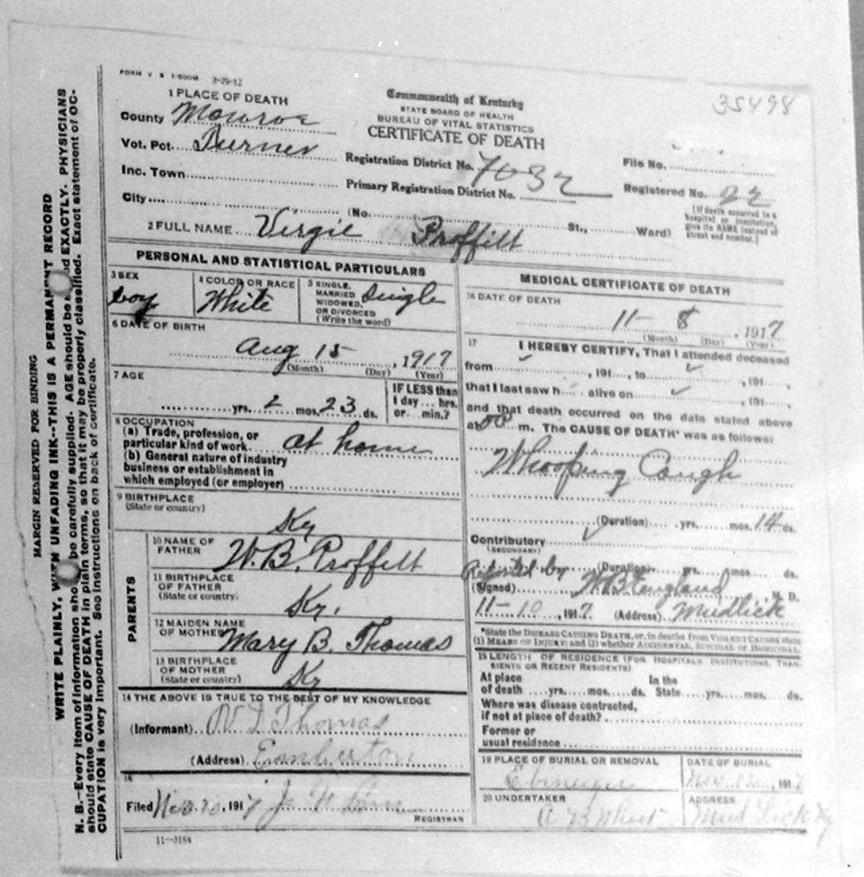 FORM V. S. 1-500M 2-29-12
35498
1 PLACE OF DEATH
County Monroe
Vot. Pct. Turner
Inc. Town
City
Commonwealth of Kentucky
STATE BOARD OF HEALTH
BUREAU OF VITAL STATISTICS
CERTIFICATE OF DEATH
Registration District No. 7032
Primary Registration District No.
File No.
Registered No. 22
(No. St., Ward)
[If death occurred in a
hospital or institution,
give its NAME instead of
street and number.]
2 FULL NAME Virgie Proffitt
PERSONAL AND STATISTICAL PARTICULARS
3 SEX
boy
4 COLOR OR RACE
White
5 SINGLE,
MARRIED
WIDOWED,
OR DIVORCED
(Write the word)
Single
6 DATE OF BIRTH
Aug 15, 1917
(Month) (Day) (Year)
7 AGE
yrs. 2 mos. 23 ds.
IF LESS than
1 day... hrs.
or... min.?
8 OCCUPATION
(a) Trade, profession, or
particular kind of work. at home
(b) General nature of industry
business or establishment in
which employed (or employer)
9 BIRTHPLACE
(State or country)
Ky
PARENTS
10 NAME OF
FATHER W. B. Proffitt
11 BIRTHPLACE
OF FATHER
(State or country.
Ky.
12 MAIDEN NAME
OF MOTHER Mary B. Thomas
13 BIRTHPLACE
OF MOTHER
(State or country) Ky
14 THE ABOVE IS TRUE TO THE BEST OF MY KNOWLEDGE
(Informant) Thomas
(Address) Emberton
15
Filed 191 7
REGISTRAR
11-3184
MEDICAL CERTIFICATE OF DEATH
16 DATE OF DEATH
11- 8, 1917
(Month) (Day) (Year)
17 I HEREBY CERTIFY, That I attended deceased
from , 191 , to , 191
that I last saw h alive on , 191 ,
and that death occurred on the date stated above
at m. The CAUSE OF DEATH* was as follows:
Whooping Cough
(Duration) yrs. mos. 14 ds.
Contributory
(SECONDARY)
(Duration) yrs. mos. ds.
Reported by
(Signed) W B England M. D.
11-10, 1917. (Address) Mudlick
*State the DISEASE CAUSING DEATH, or, in deaths from VIOLENT CAUSES state
(1) MEANS OF INJURY; and (2) whether ACCIDENTAL, SUICIDAL OR HOMICIDAL.
18 LENGTH OF RESIDENCE (FOR HOSPITALS INSTITUTIONS, TRANSIENTS OR RECENT RESIDENTS)
At place In the
of death yrs. mos. ds. State yrs. mos. ds.
Where was disease contracted,
if not at place of death?
Former or
usual residence
19 PLACE OF BURIAL OR REMOVAL
DATE OF BURIAL
191 7
20 UNDERTAKER
ADDRESS
Mud Lick Ky
MARGIN RESERVED FOR BINDING
WRITE PLAINLY, WITH UNFADING INK--THIS IS A PERMANENT RECORD
N. B.-Every item of information should be carefully supplied. AGE should be stated EXACTLY. PHYSICIANS
should state CAUSE OF DEATH in plain terms, so that it may be properly classified. Exact statement of OC-
CUPATION is very important. See instructions on back of certificate.